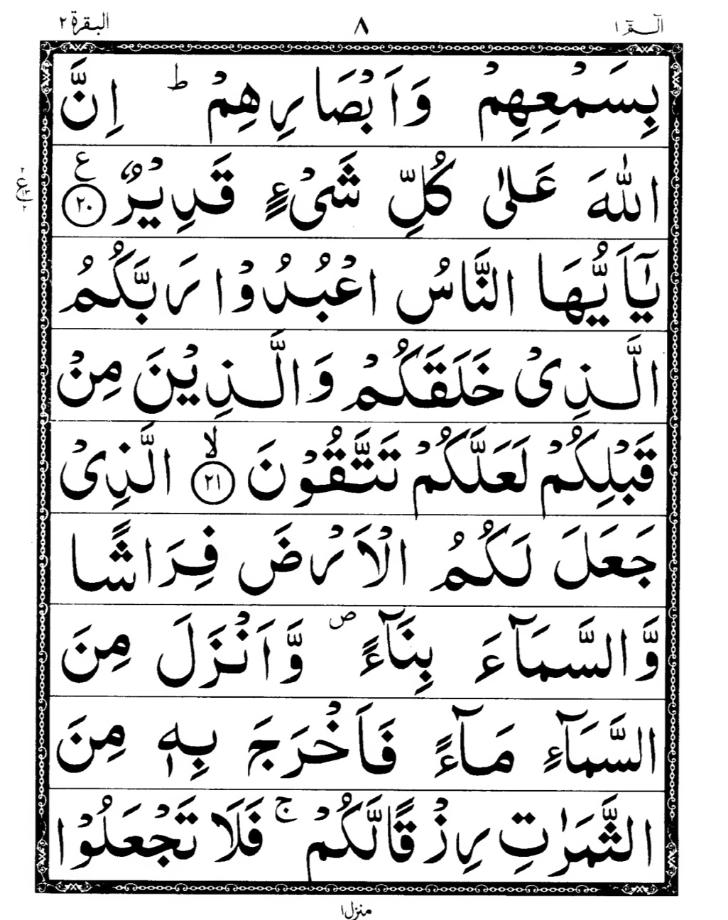 الٓـمّٓ ١ ٨ البقرة ٢
بِسَمْعِهِمْ وَاَبْصَارِهِمْ ؕ اِنَّ
اللّٰهَ عَلٰى كُلِّ شَیْءٍ قَدِیْرٌ۠ ﴿٢٠﴾ ع
یٰۤاَیُّهَا النَّاسُ اعْبُدُوْا رَبَّكُمُ
الَّذِیْ خَلَقَكُمْ وَالَّذِیْنَ مِنْ
قَبْلِكُمْ لَعَلَّكُمْ تَتَّقُوْنَ ۙ﴿٢١﴾ الَّذِیْ
جَعَلَ لَكُمُ الْاَرْضَ فِرَاشًا
وَّالسَّمَآءَ بِنَآءً ۪ وَّاَنْزَلَ مِنَ
السَّمَآءِ مَآءً فَاَخْرَجَ بِهٖ مِنَ
الثَّمَرٰتِ رِزْقًا لَّكُمْ ۚ فَلَا تَجْعَلُوْا
منزل ١